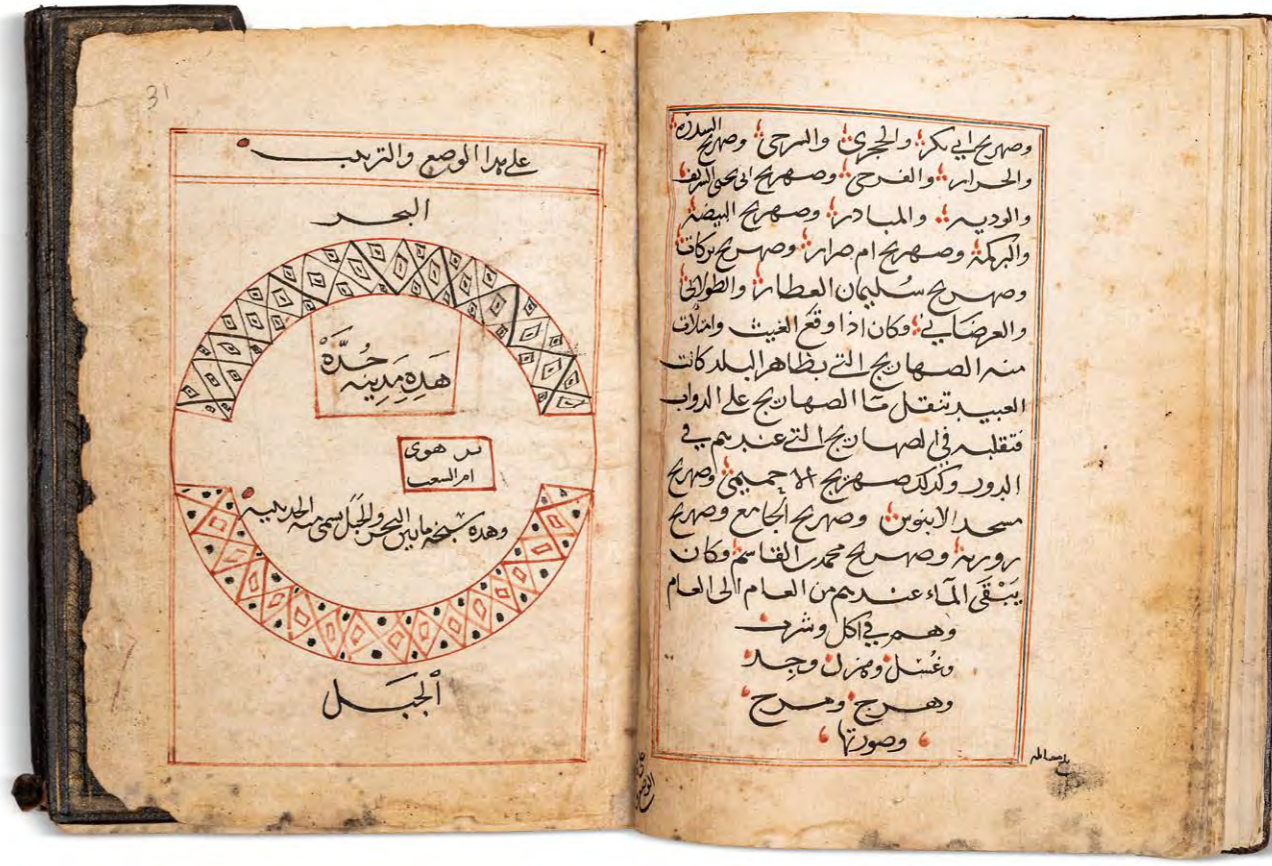 وصهريج ابي بكر والحجري والسرحي وصهريج السدرة
والحرار والفرحي وصهريج ابي يحيى الشريف
والوديه والمبادر وصهريج البيضة
والبركة وصهريج ام ضرار وصهريج بركات
وصهريج سُليمان العطار والطولاني
والعرضَاني وكان اذا وقع الغيث وامتلأت
منه الصهاريج التي بظاهر البلد كانت
العبيد تنقل مآ الصهاريج على الدواب
فتقلبه في الصهاريج التي عندهم في
الدور وكذلك صهريج وصهريج
مسجد الابنوس وصهريج الجامع وصهريج
وصهريج محمد بن القاسم فكان
يَبْقَى المآء عندهم من العام الى العام
وهم في اكل وشرب
وغُسْل وهزل وجِد
وهرج ومرج
وصورتها
بلغ مقابلة
على
الوضع
31
على هذا الوضع والترتيب
البحر
هَذِهِ مَدِينه جُدَّةْ
هوى
ام
وهذه سبخه ما بين البحر والجَبَل يسمى منه
الجبَل